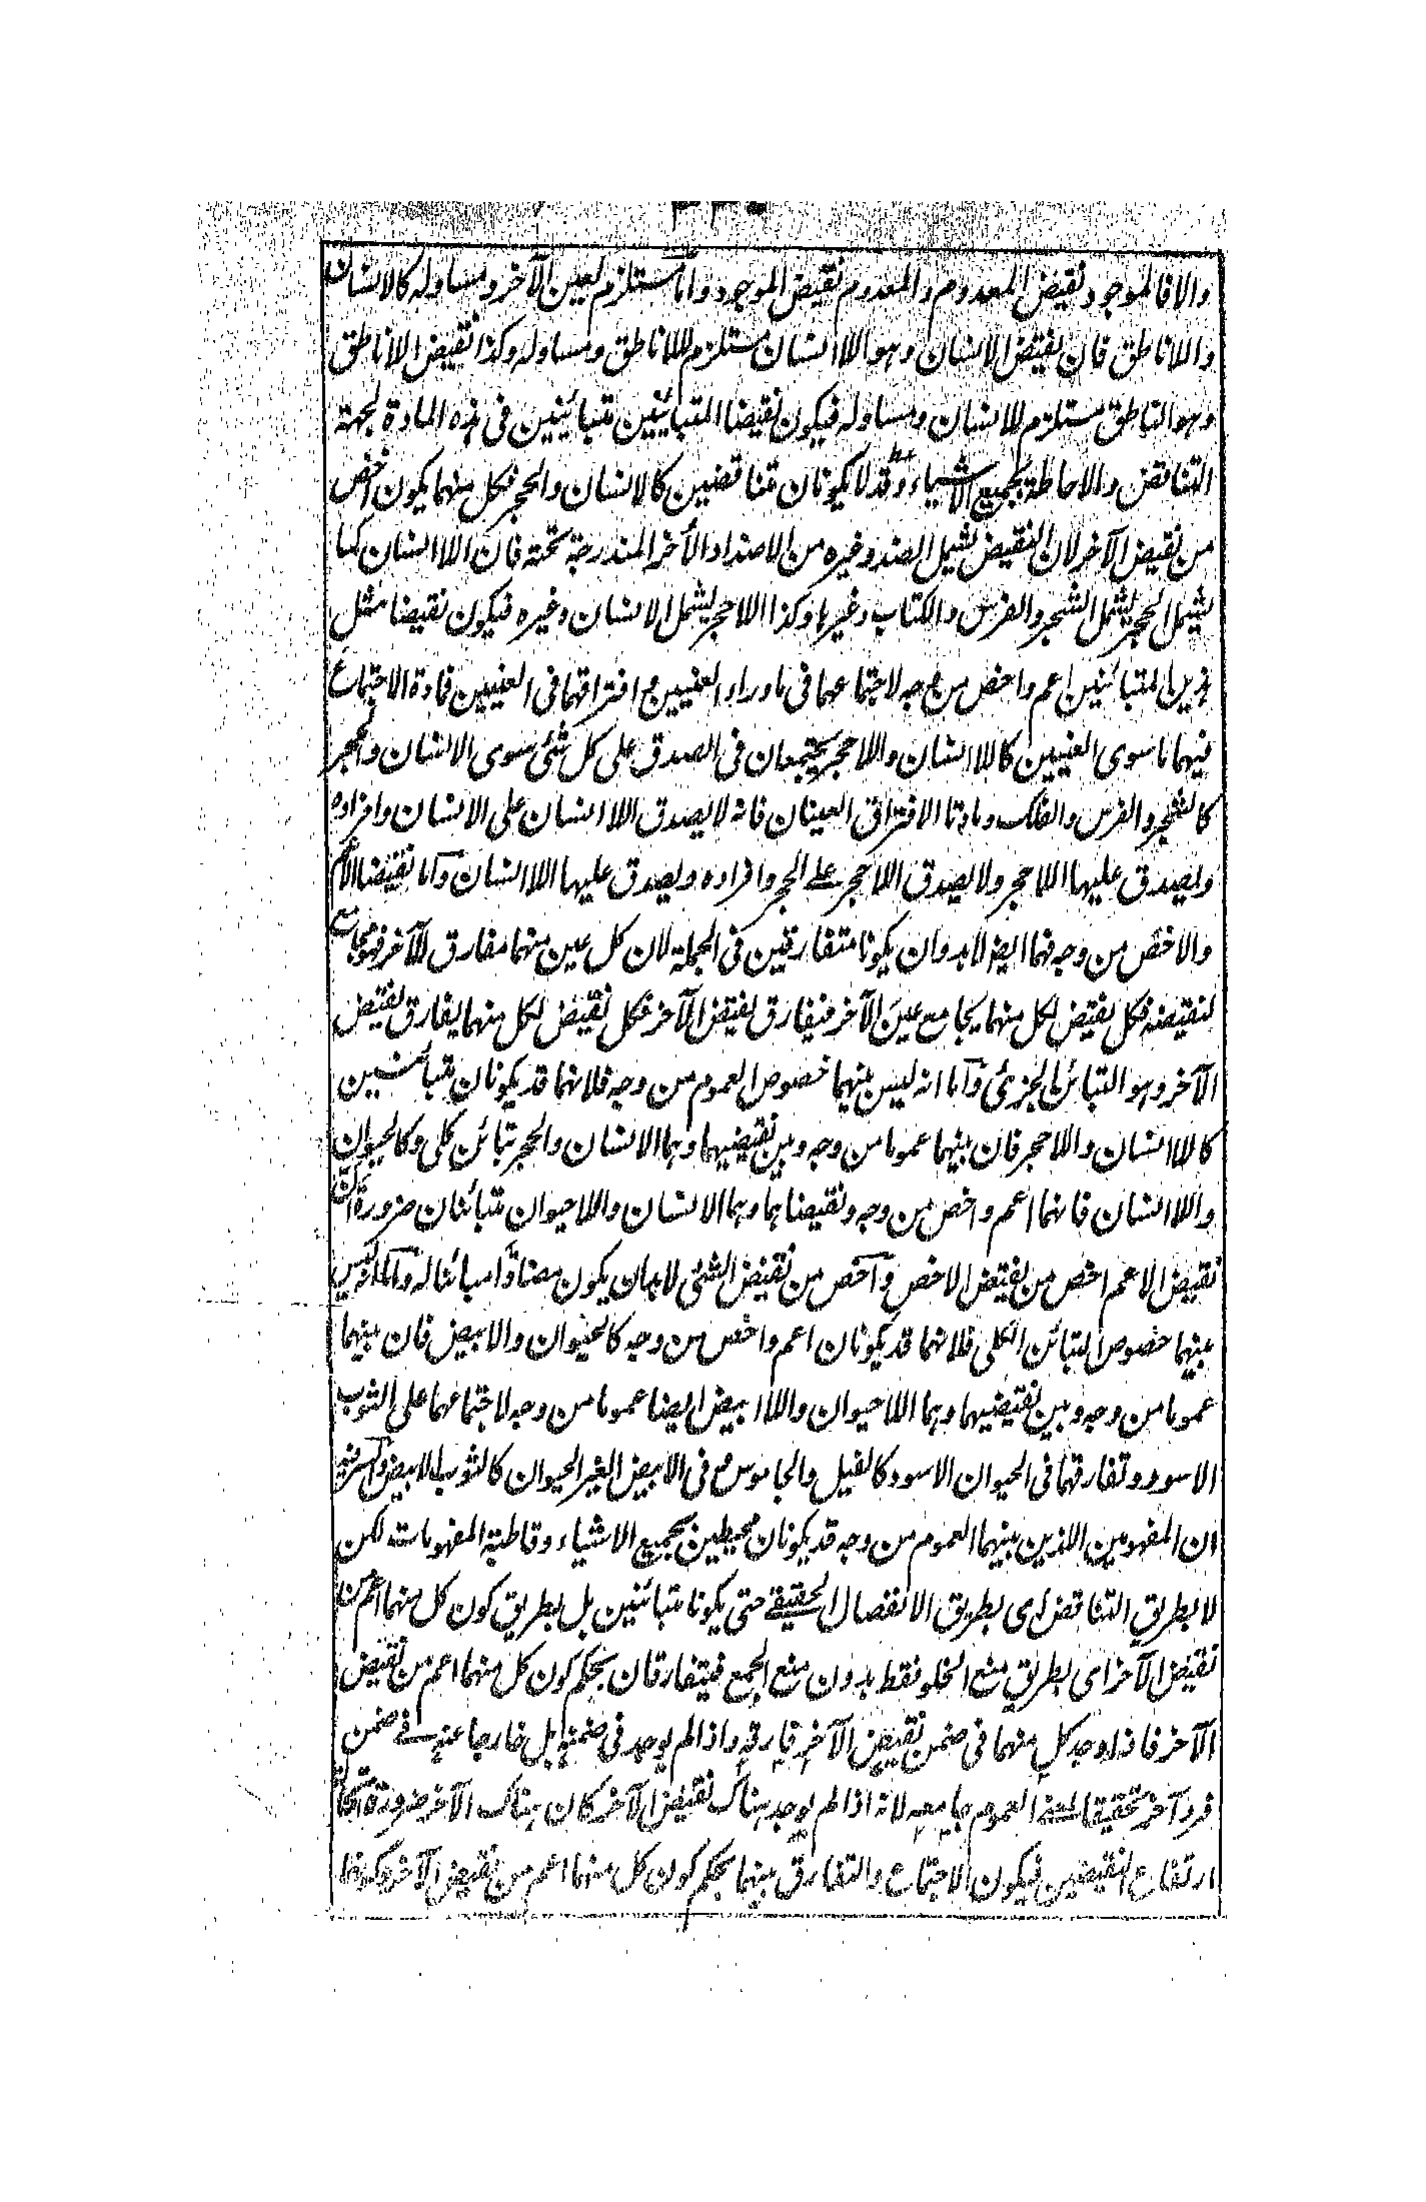 والا فالموجود نقيض المعدوم والمعدوم نقيض الموجود واما مستلزم لعين الآخر ومساو له كالانسان
واللاناطق فان نقيض الانسان وهو اللاانسان مستلزم للاناطق ومساو له وكذا نقيض اللاناطق
وهو الناطق مستلزم للانسان ومساو له فيكون نقيضا المتبائنين متبائنين فى هذه المادة لجهة
التناقض والاحاطة بجميع الاشياء وقد لا يكونان متناقضين كالانسان والحجر فكل منهما يكون اخص
من نقيض الآخر لان النقيض يشمل الضد وغيره من الاضداد الأخر المندرجة تحته فان اللاانسان كما
يشمل الحجر يشمل الشجر والفرس والكتاب وغيرها وكذا اللاحجر يشمل الانسان وغيره فيكون نقيضا مثل
هذين المتبائنين اعم واخص من وجه لاجتماعهما فى ما وراء العينين مع افتراقهما فى العينين فمادة الاجتماع
فيهما ما سوى العينين كاللاانسان واللاحجر يجتمعان فى الصدق على كل شئ سوى الانسان والحجر
كالشجر والفرس والفلك ومادتا الافتراق العينان فانه لا يصدق اللاانسان على الانسان وافراده
ويصدق عليها اللاحجر ولا يصدق اللاحجر على الحجر وافراده ويصدق عليها اللاانسان واما نقيضا الأعم
والاخص من وجه فهما ايضا لابد وان يكونا متفارقين فى الجملة لان كل عين منهما مفارق للآخر فهو مجامع
لنقيضه فكل نقيض لكل منهما يجامع عين الآخر فيفارق نقيض الآخر فكل نقيض لكل منهما يفارق نقيض
الآخر وهو التبائن الجزئى واما انه ليس بينهما خصوص العموم من وجه فلانهما قد يكونان متبائنين
كاللاانسان واللاحجر فان بينهما عموما من وجه وبين نقيضيهما وهما الانسان والحجر تبائن كلى وكالحيوان
واللاانسان فانهما اعم واخص من وجه ونقيضاهما وهما الانسان واللاحيوان متبائنان ضرورة ان
نقيض الاعم اخص من نقيض الاخص واخص من نقيض الشئ لابد ان يكون مضادا مبائنا له واما انه ليس
بينهما خصوص التبائن الكلى فلانهما قد يكونان اعم واخص من وجه كالحيوان والابيض فان بينهما
عموما من وجه وبين نقيضيهما وهما اللاحيوان واللاابيض ايضا عموما من وجه لاجتماعهما على الثوب
الاسود وتفارقهما فى الحيوان الاسود كالفيل والجاموس مع فى الابيض الغير الحيوان كالثوب الابيض والسر فيه
ان المفهومين اللذين بينهما العموم من وجه قد يكونان محيطين بجميع الاشياء وقاطبة المفهومات لكن
لا بطريق التناقض اى بطريق الانفصال الحقيقے حتى يكونا متبائنين بل بطريق كون كل منهما اعم من
نقيض الآخر اى بطريق منع الخلو فقط بدون منع الجمع فيتفارقان بحكم كون كل منهما اعم من نقيض
الآخر فاذا وجد كل منهما فى ضمن نقيض الآخر فارقه واذا لم يوجد فى ضمنه بل خارجا عنه فے ضمن
فرد آخر تحقيقا لمعنے العموم جامعه لانه اذا لم يوجد هناك نقيض الآخر كان هناك الآخر ضرورة استحالة
ارتفاع النقيضين فيكون الاجتماع والتفارق بينهما بحكم كون كل منهما اعم من نقيض الآخر